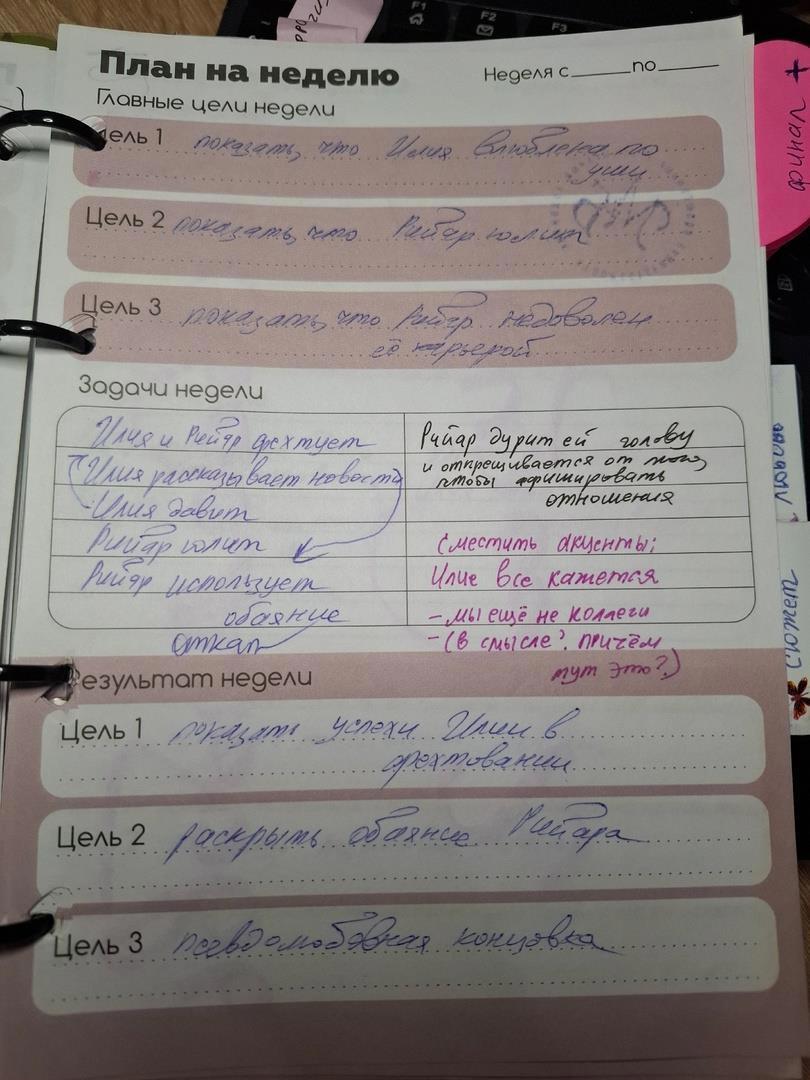 План на неделю
Неделя с ______ по ______
Главные цели недели
Цель 1 показать, что Илия влюблена по
уши
Цель 2 показать, что Рийар юлит
Цель 3 показать, что Рийар недоволен
её карьерой
Задачи недели
Илия и Рийар фехтует
Илия рассказывает новости
Илия давит
Рийар юлит
Рийар использует
обаяние
откат
Рийар дурит ей голову
и открещивается от того,
чтобы афишировать
отношения
Сместить акценты:
Илие все кажется
- мы ещё не коллеги
- (в смысле? причём
тут это?)
Результат недели
Цель 1 показать успехи Илии в
фехтовании
Цель 2 раскрыть обаяние Рийара
Цель 3 псевдолюбовная концовка
финал +
любовь
сюжет
F1
F2
F3